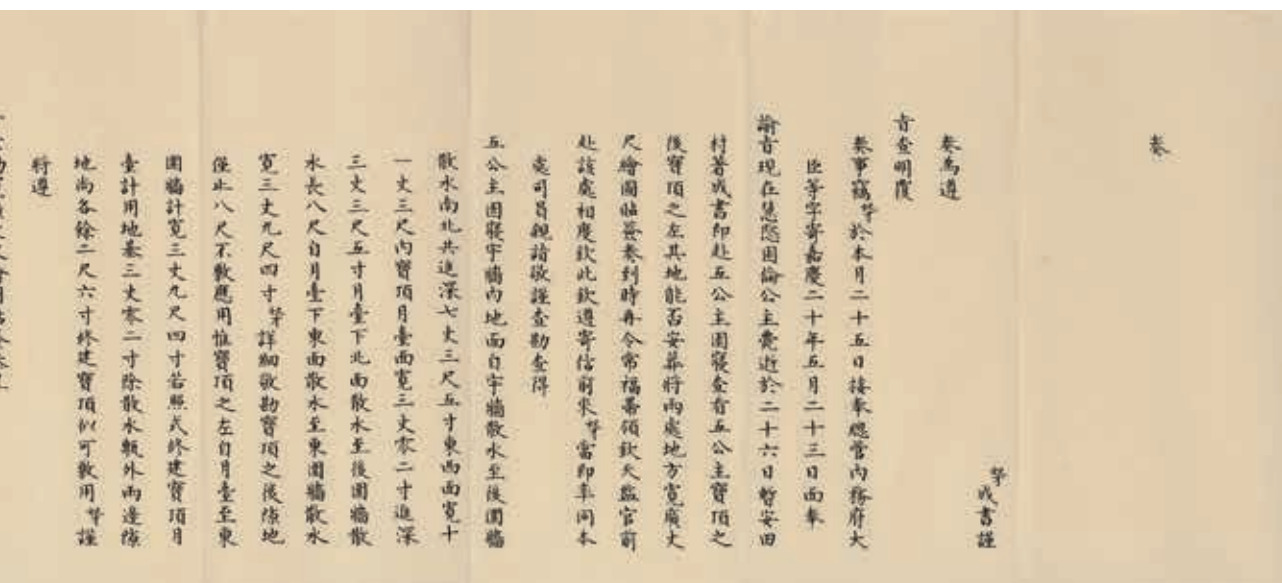 奏
奴才成書謹
奏為遵
旨查明覆
奏事竊奴才於本月二十五日接奉總管內務府大
臣等字寄嘉慶二十年五月二十三日面奉
諭旨現在慧愍固倫公主薨逝於二十六日暫安田
村著成書即赴五公主園寢查看五公主寶頂之
後寶頂之左其地能否安葬將兩處地方寬廣丈
尺繪圖貼簽奏到時再令常福帶領欽天監官前
赴該處相度欽此欽遵寄信前來奴才當即率同本
處司員親詣敬謹查勘查得
五公主園寢宇牆內地面自宇牆散水至後圍牆
散水南北共進深七丈三尺五寸東西面寬十
一丈三尺內寶頂月臺面寬三丈零二寸進深
三丈三尺五寸月臺下北面散水至後圍牆散
水長八尺自月臺下東面散水至東圍牆散水
寬三丈九尺四寸奴才詳細敬勘寶頂之後隙地
僅止八尺不敷應用惟寶頂之左自月臺至東
圍牆計寬三丈九尺四寸若照式修建寶頂月
臺計用地基三丈零二寸除散水甎外兩邊隙
地尚各餘二尺六寸修建寶頂似可敷用奴才謹
將遵